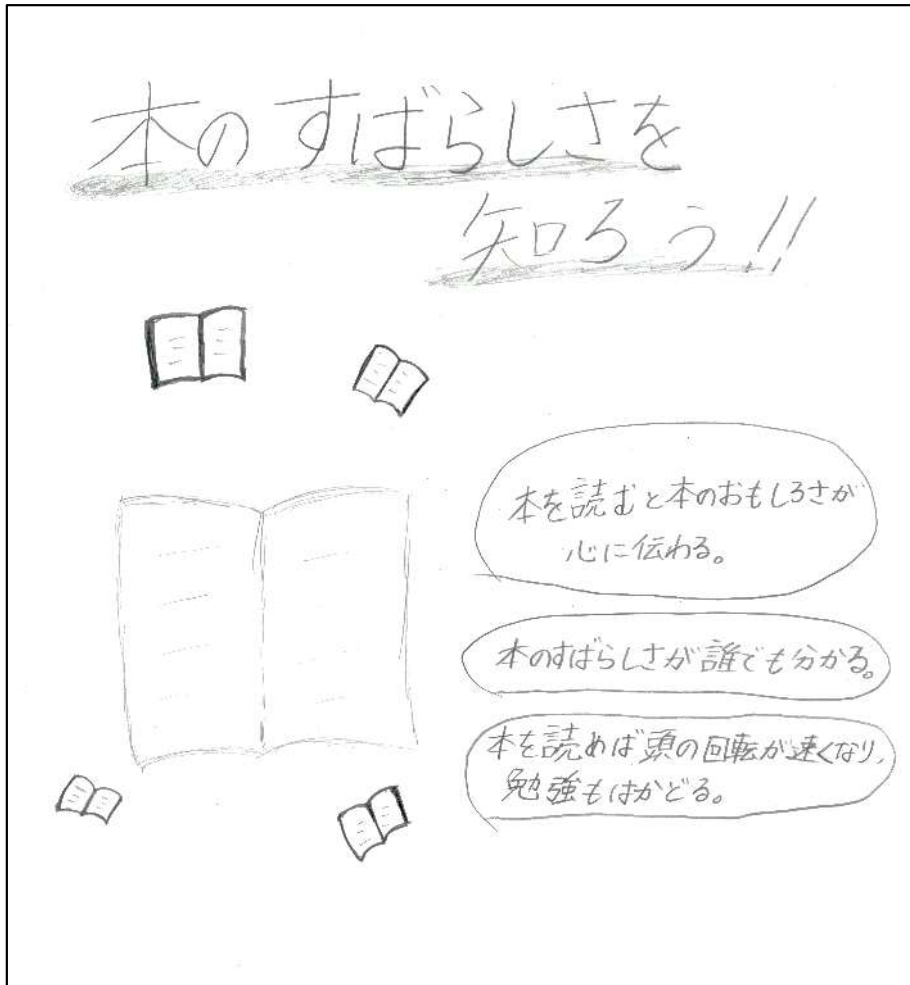 本のすばらしさを
知ろう!!
本を読むと本のおもしろさが
心に伝わる。
本のすばらしさが誰でも分かる。
本を読めば頭の回転が速くなり、
勉強もはかどる。